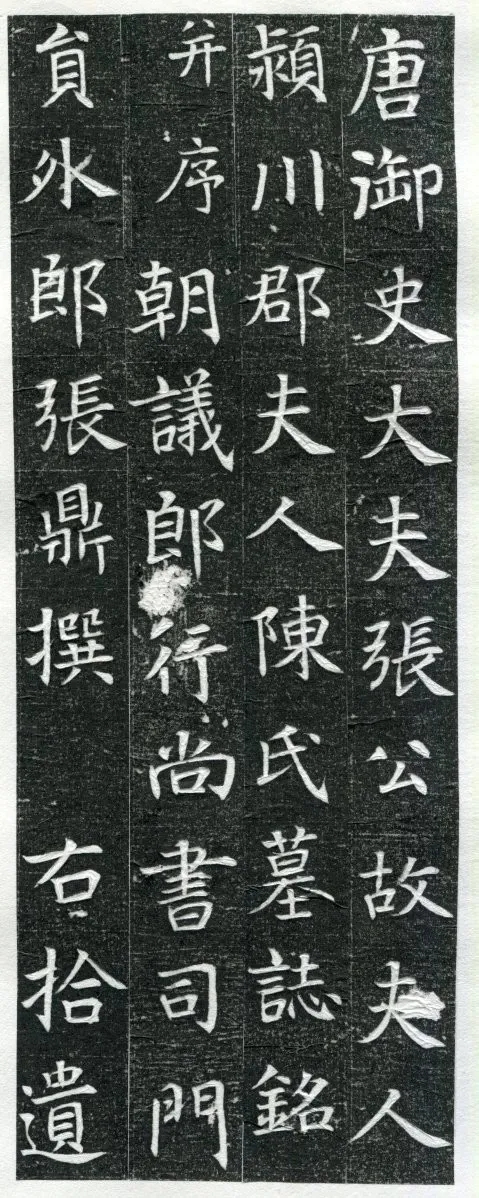 唐御史大夫張公故夫人
潁川郡夫人陳氏墓誌銘
并序朝議郎行尚書司門
貟外郎張鼎撰右拾遺